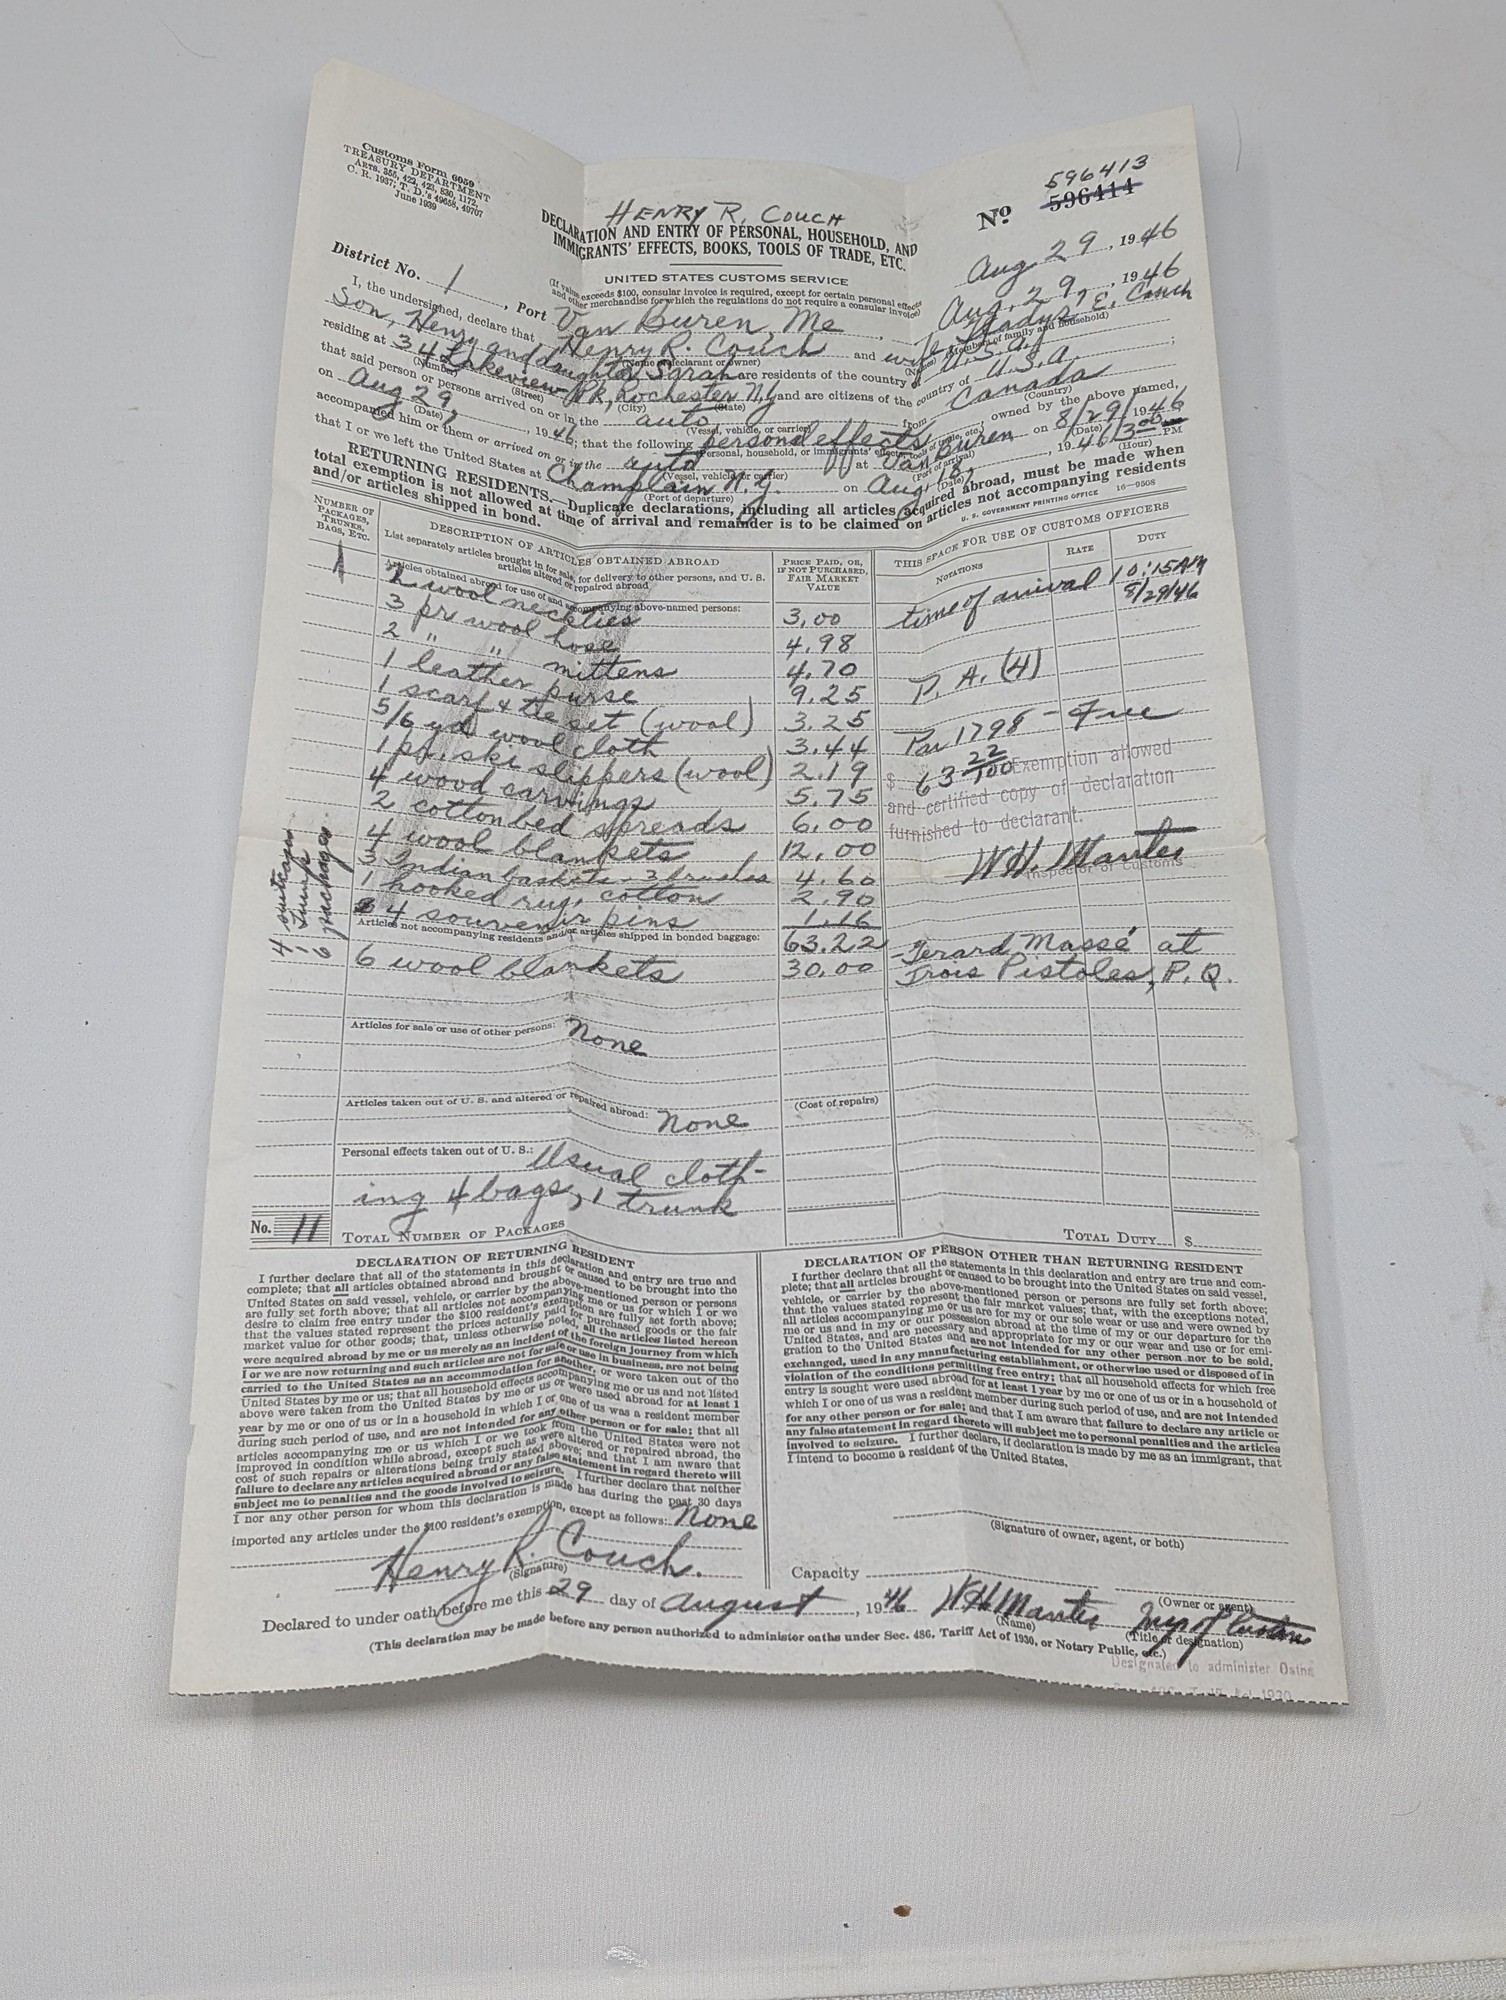 Customs Form 6059
TREASURY DEPARTMENT
ARTS. 355, 422, 423, 830, 1172,
C. R. 1937; T. D.'s 49658, 49707
June 1939
HENRY R. COUCH
DECLARATION AND ENTRY OF PERSONAL, HOUSEHOLD, AND
IMMIGRANTS' EFFECTS, BOOKS, TOOLS OF TRADE, ETC.
UNITED STATES CUSTOMS SERVICE
(If value exceeds $100, consular invoice is required, except for certain personal effects
and other merchandise for which the regulations do not require a consular invoice)
596413
No 596414
Aug 29, 1946
District No. 1, Port Van Buren, Me, Aug. 29, 1946
I, the undersigned, declare that I, Henry R. Couch and wife Gladys E. Couch
(Name of declarant or owner) (Names) (Members of family and household)
Son, Henry and daughter Sarah are residents of the country of U.S.A.;
residing at 34 Lakeview Pk, Rochester N.Y. and are citizens of the country of U.S.A.
(Number) (Street) (City) (State) (Country)
that said person or persons arrived on or in the auto from Canada
(Vessel, vehicle, or carrier)
on Aug 29, 1946; that the following personal effects owned by the above named,
(Date) (Personal, household, or immigrants' effects, tools of trade, etc.)
accompanied him or them or arrived on or in the auto at Van Buren on 8/29/1946
(Vessel, vehicle, or carrier) (Port of arrival) (Date)
that I or we left the United States at Champlain N.Y. on Aug. 18, 1946, 3:00 PM
(Port of departure) (Date) (Hour)
RETURNING RESIDENTS.—Duplicate declarations, including all articles acquired abroad, must be made when
total exemption is not allowed at time of arrival and remainder is to be claimed on articles not accompanying residents
and/or articles shipped in bond.
U. S. GOVERNMENT PRINTING OFFICE 16—9508
NUMBER OF PACKAGES, TRUNKS, BAGS, ETC.
DESCRIPTION OF ARTICLES OBTAINED ABROAD
List separately articles brought in for sale, for delivery to other persons, and U. S. articles altered or repaired abroad
PRICE PAID, OR, IF NOT PURCHASED, FAIR MARKET VALUE
THIS SPACE FOR USE OF CUSTOMS OFFICERS
NOTATIONS RATE DUTY
Articles obtained abroad for use of and accompanying above-named persons:
1 2 wool neckties 3.00
time of arrival 10:15 AM
8/29/46
3 pr wool hose 4.98
2 " " mittens 4.70
1 leather purse 9.25
P. A. (4)
1 scarf & tie set (wool) 3.25
5/6 yd wool cloth 3.44
Par 1798 - Free
1 pr. ski slippers (wool) 2.19
$ 63 22/100 Exemption allowed
4 wood carvings 5.75
and certified copy of declaration
2 cotton bed spreads 6.00
furnished to declarant.
4 wool blankets 12.00
W.H. Manter
Inspector of Customs
3 Indian baskets - 3 brushes 4.60
1 hooked rug, cotton 2.90
4 souvenir pins 1.16
4 suitcases
1 trunk
6 packages
Articles not accompanying residents and/or articles shipped in bonded baggage: 63.22
6 wool blankets 30.00
Gerard Massé at
Trois Pistoles, P. Q.
Articles for sale or use of other persons: None
Articles taken out of U. S. and altered or repaired abroad: None
(Cost of repairs)
Personal effects taken out of U. S.: Usual cloth-
ing 4 bags, 1 trunk
No. 11 TOTAL NUMBER OF PACKAGES
TOTAL DUTY $
DECLARATION OF RETURNING RESIDENT
I further declare that all of the statements in this declaration and entry are true and
complete; that all articles obtained abroad and brought or caused to be brought into the
United States on said vessel, vehicle, or carrier by the above-mentioned person or persons
are fully set forth above; that all articles not accompanying me or us for which I or we
desire to claim free entry under the $100 resident's exemption are fully set forth above;
that the values stated represent the prices actually paid for purchased goods or the fair
market value for other goods; that, unless otherwise noted, all the articles listed hereon
were acquired abroad by me or us merely as an incident of the foreign journey from which
I or we are now returning and such articles are not for sale or use in business, are not being
carried to the United States as an accommodation for another, or were taken out of the
United States by me or us; that all household effects accompanying me or us and not listed
above were taken from the United States by me or us or were used abroad for at least 1
year by me or one of us or in a household in which I or one of us was a resident member
during such period of use, and are not intended for any other person or for sale; that all
articles accompanying me or us which I or we took from the United States were not
improved in condition while abroad, except such as were altered or repaired abroad, the
cost of such repairs or alterations being truly stated above; and that I am aware that
failure to declare any articles acquired abroad or any false statement in regard thereto will
subject me to penalties and the goods involved to seizure. I further declare that neither
I nor any other person for whom this declaration is made has during the past 30 days
imported any articles under the $100 resident's exemption, except as follows: None
Henry R. Couch.
(Signature)
DECLARATION OF PERSON OTHER THAN RETURNING RESIDENT
I further declare that all the statements in this declaration and entry are true and com-
plete; that all articles brought or caused to be brought into the United States on said vessel,
vehicle, or carrier by the above-mentioned person or persons are fully set forth above;
that the values stated represent the fair market values; that, with the exceptions noted,
all articles accompanying me or us are for my or our sole wear or use and were owned by
me or us and in my or our possession abroad at the time of my or our departure for the
United States, and are necessary and appropriate for my or our wear and use or for emi-
gration to the United States and are not intended for any other person nor to be sold,
exchanged, used in any manufacturing establishment, or otherwise used or disposed of in
violation of the conditions permitting free entry; that all household effects for which free
entry is sought were used abroad for at least 1 year by me or one of us or in a household of
which I or one of us was a resident member during such period of use, and are not intended
for any other person or for sale; and that I am aware that failure to declare any article or
any false statement in regard thereto will subject me to personal penalties and the articles
involved to seizure. I further declare, if declaration is made by me as an immigrant, that
I intend to become a resident of the United States.
(Signature of owner, agent, or both)
Capacity
(Owner or agent)
Declared to under oath before me this 29 day of August, 1946 W H Manter Insp of Customs
(Name) (Title or designation)
(This declaration may be made before any person authorized to administer oaths under Sec. 486, Tariff Act of 1930, or Notary Public, etc.)
Designated to administer Oaths